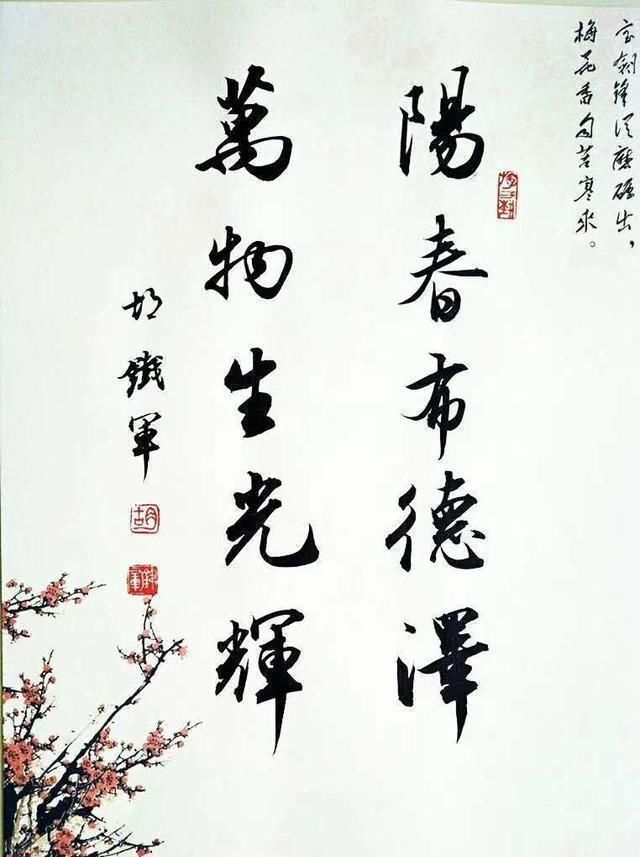 宝剑锋从磨砺出，
梅花香自苦寒来。
陽春布德澤
萬物生光輝
胡鐵軍
胡